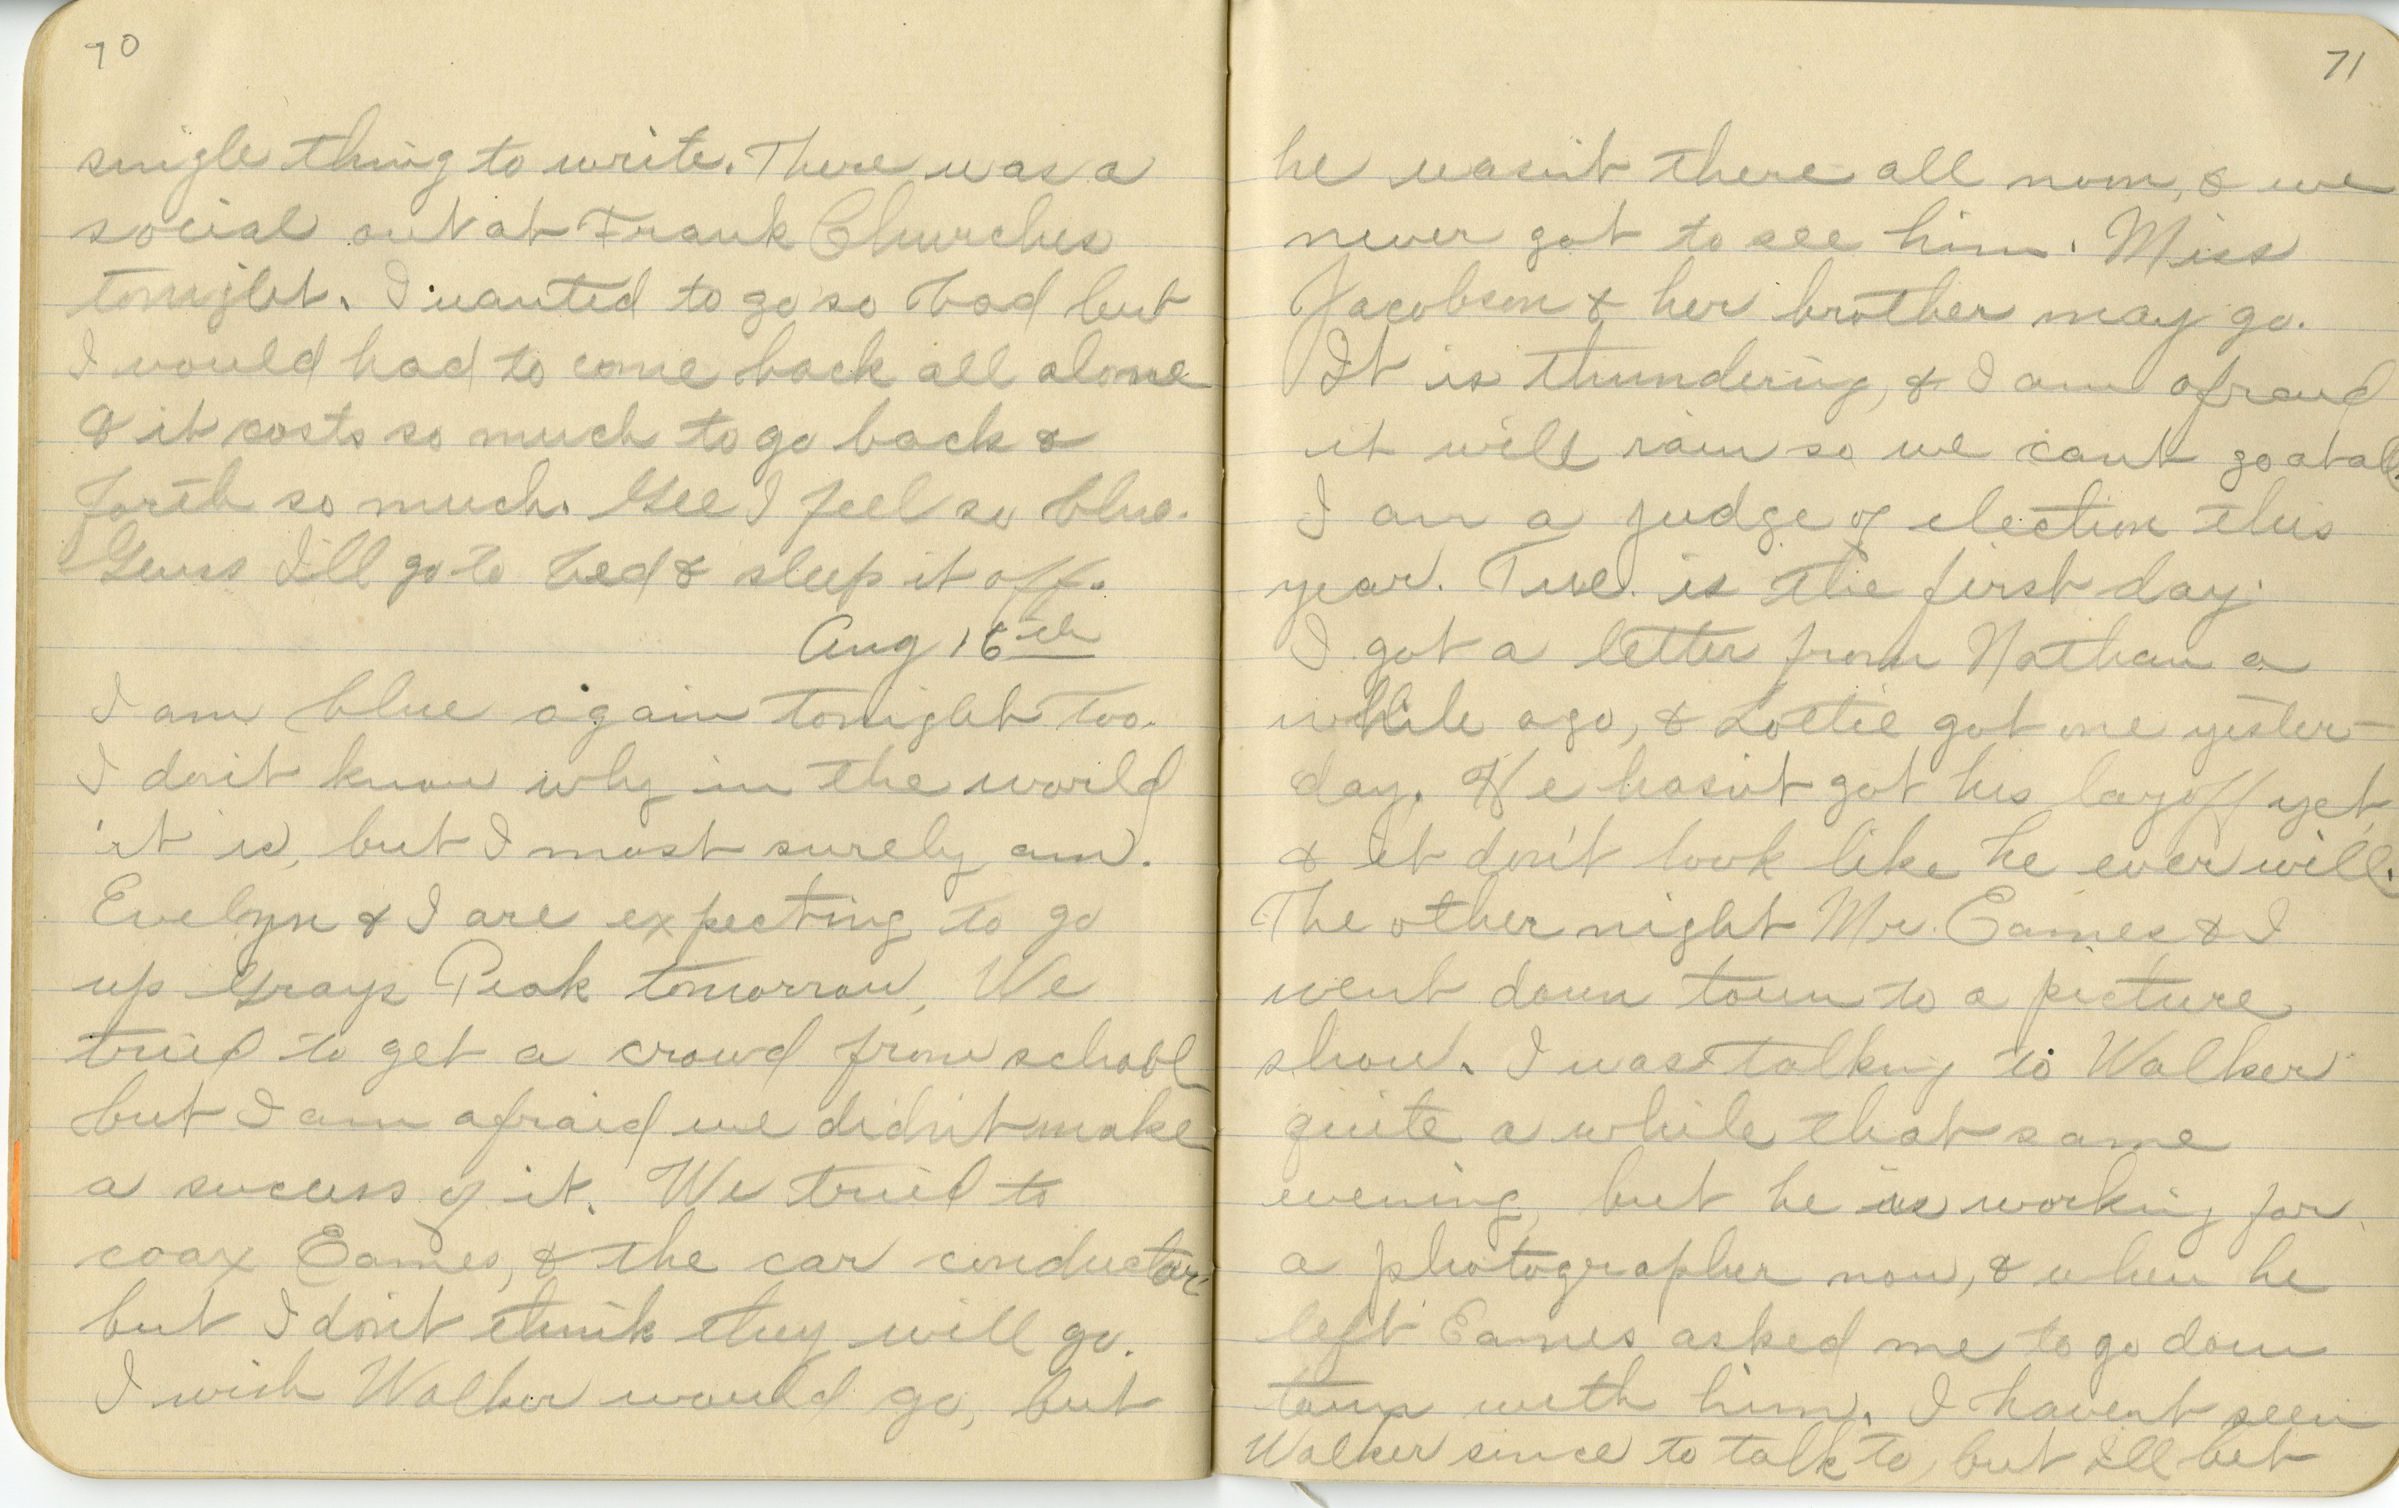 70
single thing to write. There was a
social out at Frank Churches
tonight. I wanted to go so bad but
I would had to come back all alone
& it costs so much to go back &
forth so much. Gee I feel so blue.
Guess I'll go to bed & sleep it off.
Aug 16th
I am blue again tonight too.
I don't know why in the world
it is, but I most surely am.
Evelyn & I are expecting to go
up Grays Peak tomorrow, We
tried to get a crowd from school
but I am afraid we didn't make
a success of it. We tried to
coax Eames, & the car conductor
but I don't think they will go.
I wish Walker would go, but
71
he wasn't there all noon, & we
never got to see him. Miss
Jacobson & her brother may go.
It is thundering, & I am afraid
it will rain so we cant go atall.
I am a judge of election this
year. Tue. is the first day.
I got a letter from Nathan a
while ago, & Lottie got one yester-
day. He hasn't got his layoff yet,
& it don't look like he ever will.
The other night Mr. Eames & I
went down town to a picture
show. I was talking to Walker
quite a while that same
evening, but he is working for
a photographer now, & when he
left Eames asked me to go down
town with him. I havent seen
Walker since to talk to, but I'll bet